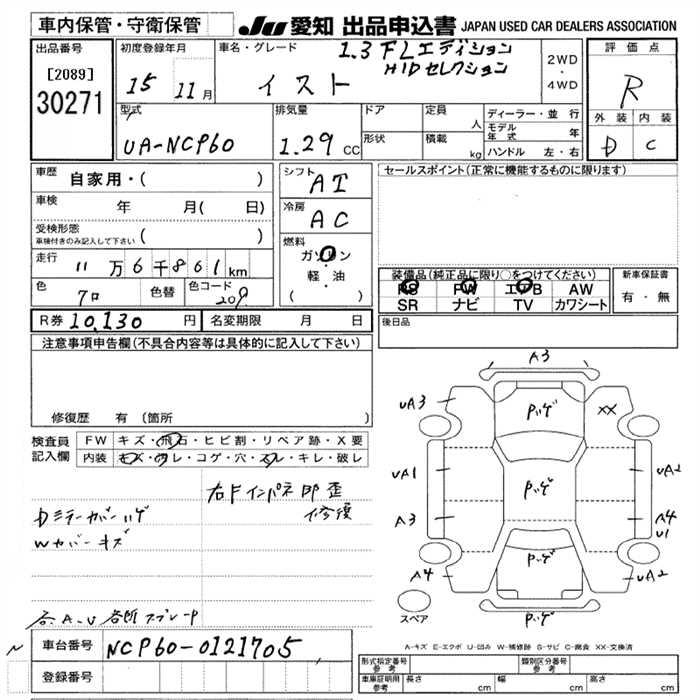 車内保管・守衛保管 JU 愛知 出品申込書 JAPAN USED CAR DEALERS ASSOCIATION
出品番号
[2089]
30271
初度登録年月
15 11月
車名・グレード
1.3 FLエディション
HIDセレクション
イスト
2WD
・
4WD
評価点
R
外装 内装
D C
型式
UA-NCP60
排気量
1.29 CC
ドア
形状
定員 人
積載 kg
ディーラー・並行
モデル年式 年
ハンドル 左・右
車歴 自家用・( )
車検 年 月( 日)
受検形態
車検付きのみ記入して下さい ( )
走行 11万6千861km
色 クロ 色替 色コード 209
シフト AT
冷房 AC
燃料
ガソリン
軽・油
( )
セールスポイント(正常に機能するものに限ります)
装備品(純正品に限り○をつけてください)
PS PW エアB AW
SR ナビ TV カワシート
新車保証書
有・無
後日品
R券 10,130 円 名変期限 月 日
注意事項申告欄(不具合内容等は具体的に記入して下さい)
修復歴 有 (箇所 )
検査員
記入欄
FW キズ・飛石・ヒビ割・リペア跡・X要
内装 キズ・ヨゴレ・コゲ・穴・スレ・キレ・破レ
右Fインパネ 歪
修復
Dミラーカバーハゲ
Wカバーキズ
各A.U 各所スプレー
A3
UA3
Pハゲ
XX
UA1
Pハゲ
UA2
A3
A4
U1
Pハゲ
A4
UA2
スペア
Pハゲ
A-キズ E-エクボ U-凹み W-補修跡 S-サビ C-腐食 XX-交換済
車台番号 NCP60-0121705
登録番号
形式指定番号
参考
類別区分番号
参考
車庫証明用
参考
長さ cm 幅 cm 高さ cm